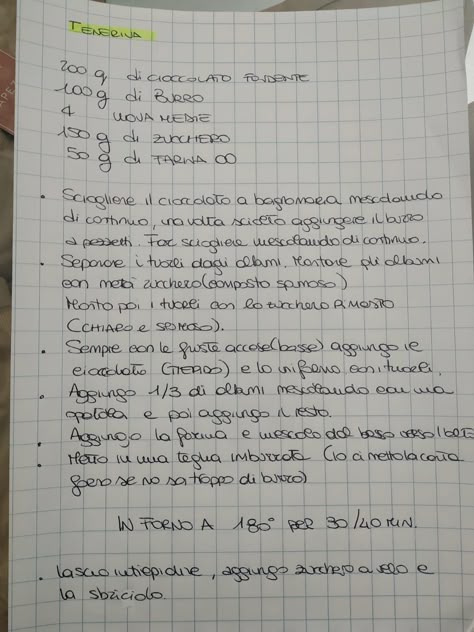 TENERINA
200 g di CIOCCOLATO FONDENTE
100 g di BURRO
4 UOVA MEDIE
150 g di ZUCCHERO
50 g di FARINA 00
• Sciogliere il cioccolato a bagnomaria mescolando
di continuo, una volta sciolto aggiungere il burro
a pezzetti. Far sciogliere mescolando di continuo.
• Separare i tuorli dagli albumi. Montare gli albumi
con metà zucchero (composto spumoso)
Monto poi i tuorli con lo zucchero RIMASTO
(CHIARO e SPUMOSO).
• Sempre con le fruste accese (basse) aggiungo il
cioccolato (TIEPIDO) e lo unifermo con i tuorli.
• Aggiungo 1/3 di albumi mescolando con una
spatola e poi aggiungo il resto.
• Aggiungo la farina e mescolo dal basso verso l'alto
• Metto in una teglia imburrata (io ci metto la carta
forno se no sa troppo di burro)
IN FORNO A 180° PER 30/40 MIN.
• Lascio intiepidire, aggiungo zucchero a velo e
la sbriciolo.